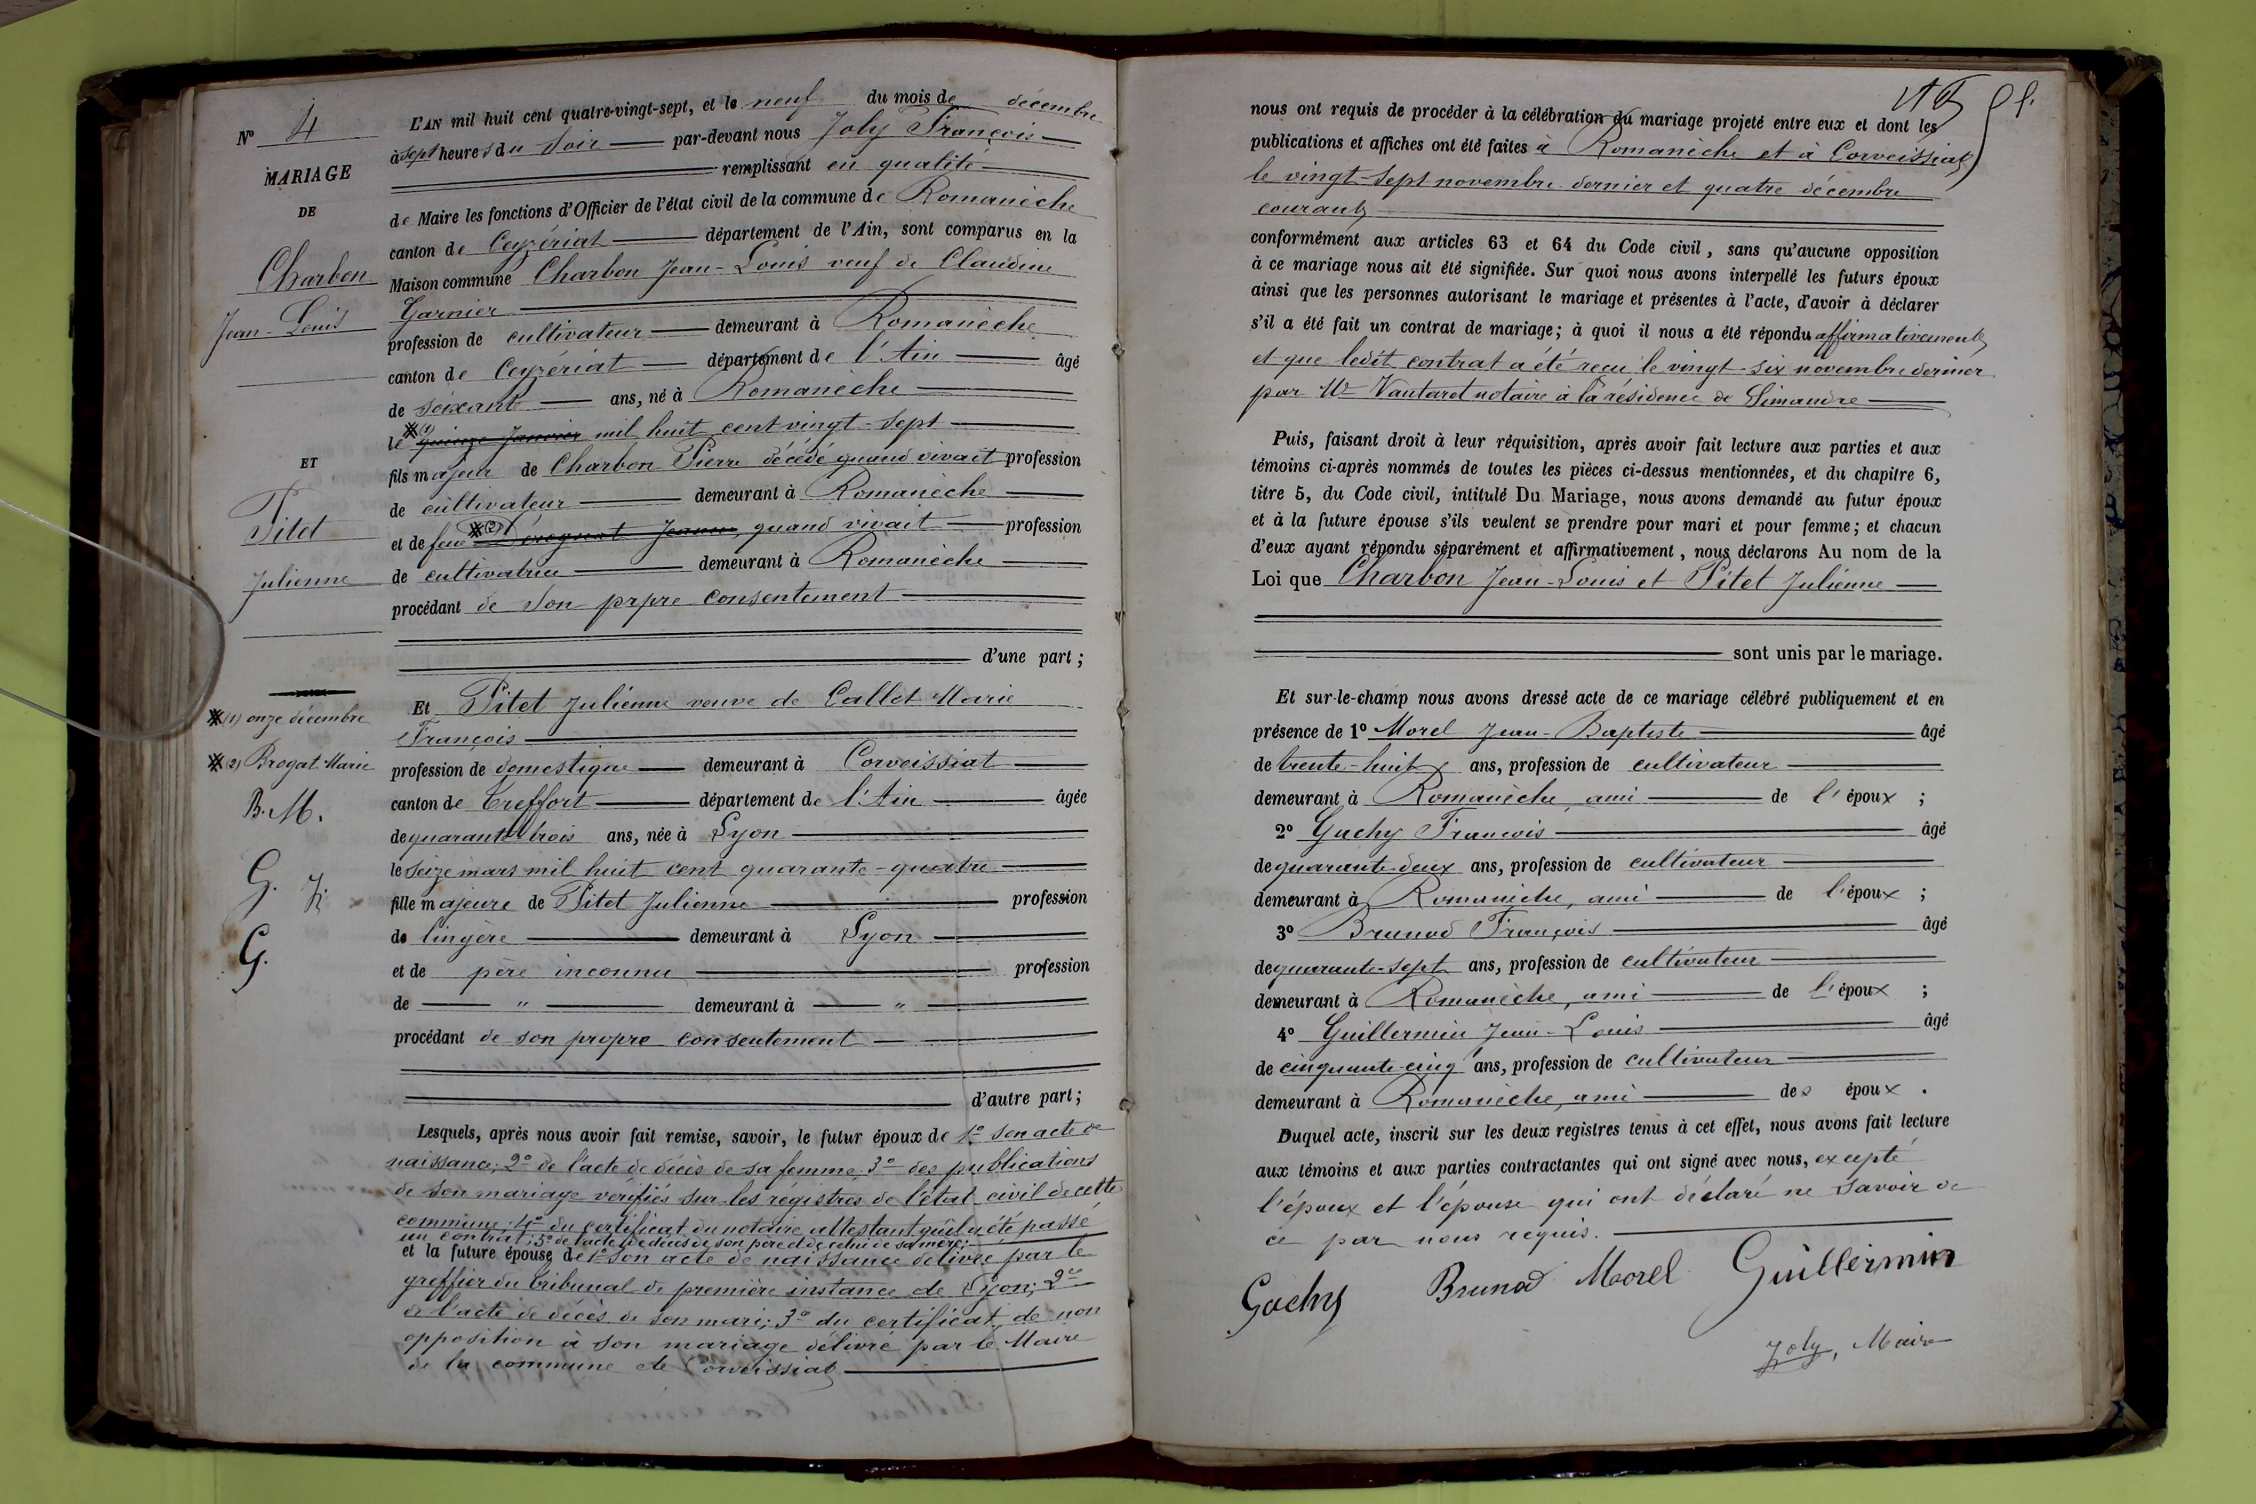 N° 4
MARIAGE
DE
Charbon
Jean-Louis
ET
Pitet
Julienne
(1) onze décembre
(2) Brogat Marie
B. M.
G. J.
G.
L'AN mil huit cent quatre-vingt-sept, et le neuf du mois de décembre
à sept heures du soir par-devant nous Joly François
remplissant en qualité
de Maire les fonctions d'Officier de l'état civil de la commune de Romanèche
canton de Ceyzériat département de l'Ain, sont comparus en la
Maison commune Charbon Jean-Louis veuf de Claudine
Garnier
profession de cultivateur demeurant à Romanèche
canton de Ceyzériat département de l'Ain âgé
de soixante ans, né à Romanèche
le (1) quinze Janvier mil huit cent vingt-sept
fils majeur de Charbon Pierre décédé quand vivait profession
de cultivateur demeurant à Romanèche
et de feue (2) Jeanne, quand vivait profession
de cultivatrice demeurant à Romanèche
procédant de son prpre consentement
d'une part ;
Et Pitet Julienne veuve de Callet Marie
François
profession de domestique demeurant à Corveissiat
canton de Treffort département de l'Ain âgée
de quarante trois ans, née à Lyon
le seize mars mil huit cent quarante-quatre
fille majeure de Pitet Julienne profession
de lingère demeurant à Lyon
et de père inconnu profession
de " demeurant à "
procédant de son propre consentement
d'autre part ;
Lesquels, après nous avoir fait remise, savoir, le futur époux de 1° son acte de
naissance; 2° de l'acte de décès de sa femme; 3° des publications
de son mariage vérifiés sur les régistres de l'état civil de cette
commune; 4° du certificat du notaire attestant qu'il a été passé
un contrat; 5° de l'acte de décès de son père et de celui de sa mère;
et la future épouse de 1° son acte de naissance délivré par le
greffier du tribunal de première instance de Lyon; 2°
de l'acte de décès de son mari; 3° du certificat de non
opposition à son mariage délivré par le Maire
de la commune de Corveissiat
nous ont requis de procéder à la célébration du mariage projeté entre eux et dont les
publications et affiches ont été faites à Romanèche et à Corveissiat
le vingt-sept novembre dernier et quatre décembre
courant
conformément aux articles 63 et 64 du Code civil, sans qu'aucune opposition
à ce mariage nous ait été signifiée. Sur quoi nous avons interpellé les futurs époux
ainsi que les personnes autorisant le mariage et présentes à l'acte, d'avoir à déclarer
s'il a été fait un contrat de mariage; à quoi il nous a été répondu affirmativement
et que ledit contrat a été reçu le vingt-six novembre dernier
par Me Vautaret notaire à la résidence de Simandre
Puis, faisant droit à leur réquisition, après avoir fait lecture aux parties et aux
témoins ci-après nommés de toutes les pièces ci-dessus mentionnées, et du chapitre 6,
titre 5, du Code civil, intitulé Du Mariage, nous avons demandé au futur époux
et à la future épouse s'ils veulent se prendre pour mari et pour femme; et chacun
d'eux ayant répondu séparément et affirmativement, nous déclarons Au nom de la
Loi que Charbon Jean-Louis et Pitet Julienne
sont unis par le mariage.
Et sur-le-champ nous avons dressé acte de ce mariage célébré publiquement et en
présence de 1° Morel Jean-Baptiste âgé
de trente-huit ans, profession de cultivateur
demeurant à Romanèche, ami de l'époux ;
2° Gachy François âgé
de quarante-deux ans, profession de cultivateur
demeurant à Romanèche, ami de l'époux ;
3° Brunod François âgé
de quarante-sept ans, profession de cultivateur
demeurant à Romanèche, ami de l'époux ;
4° Guillermin Jean-Louis âgé
de cinquante-cinq ans, profession de cultivateur
demeurant à Romanèche, ami des époux .
Duquel acte, inscrit sur les deux registres tenus à cet effet, nous avons fait lecture
aux témoins et aux parties contractantes qui ont signé avec nous, excepté
l'époux et l'épouse qui ont déclaré ne savoir de
ce par nous requis.
Gachy Brunod Morel Guillermin
Joly, Maire